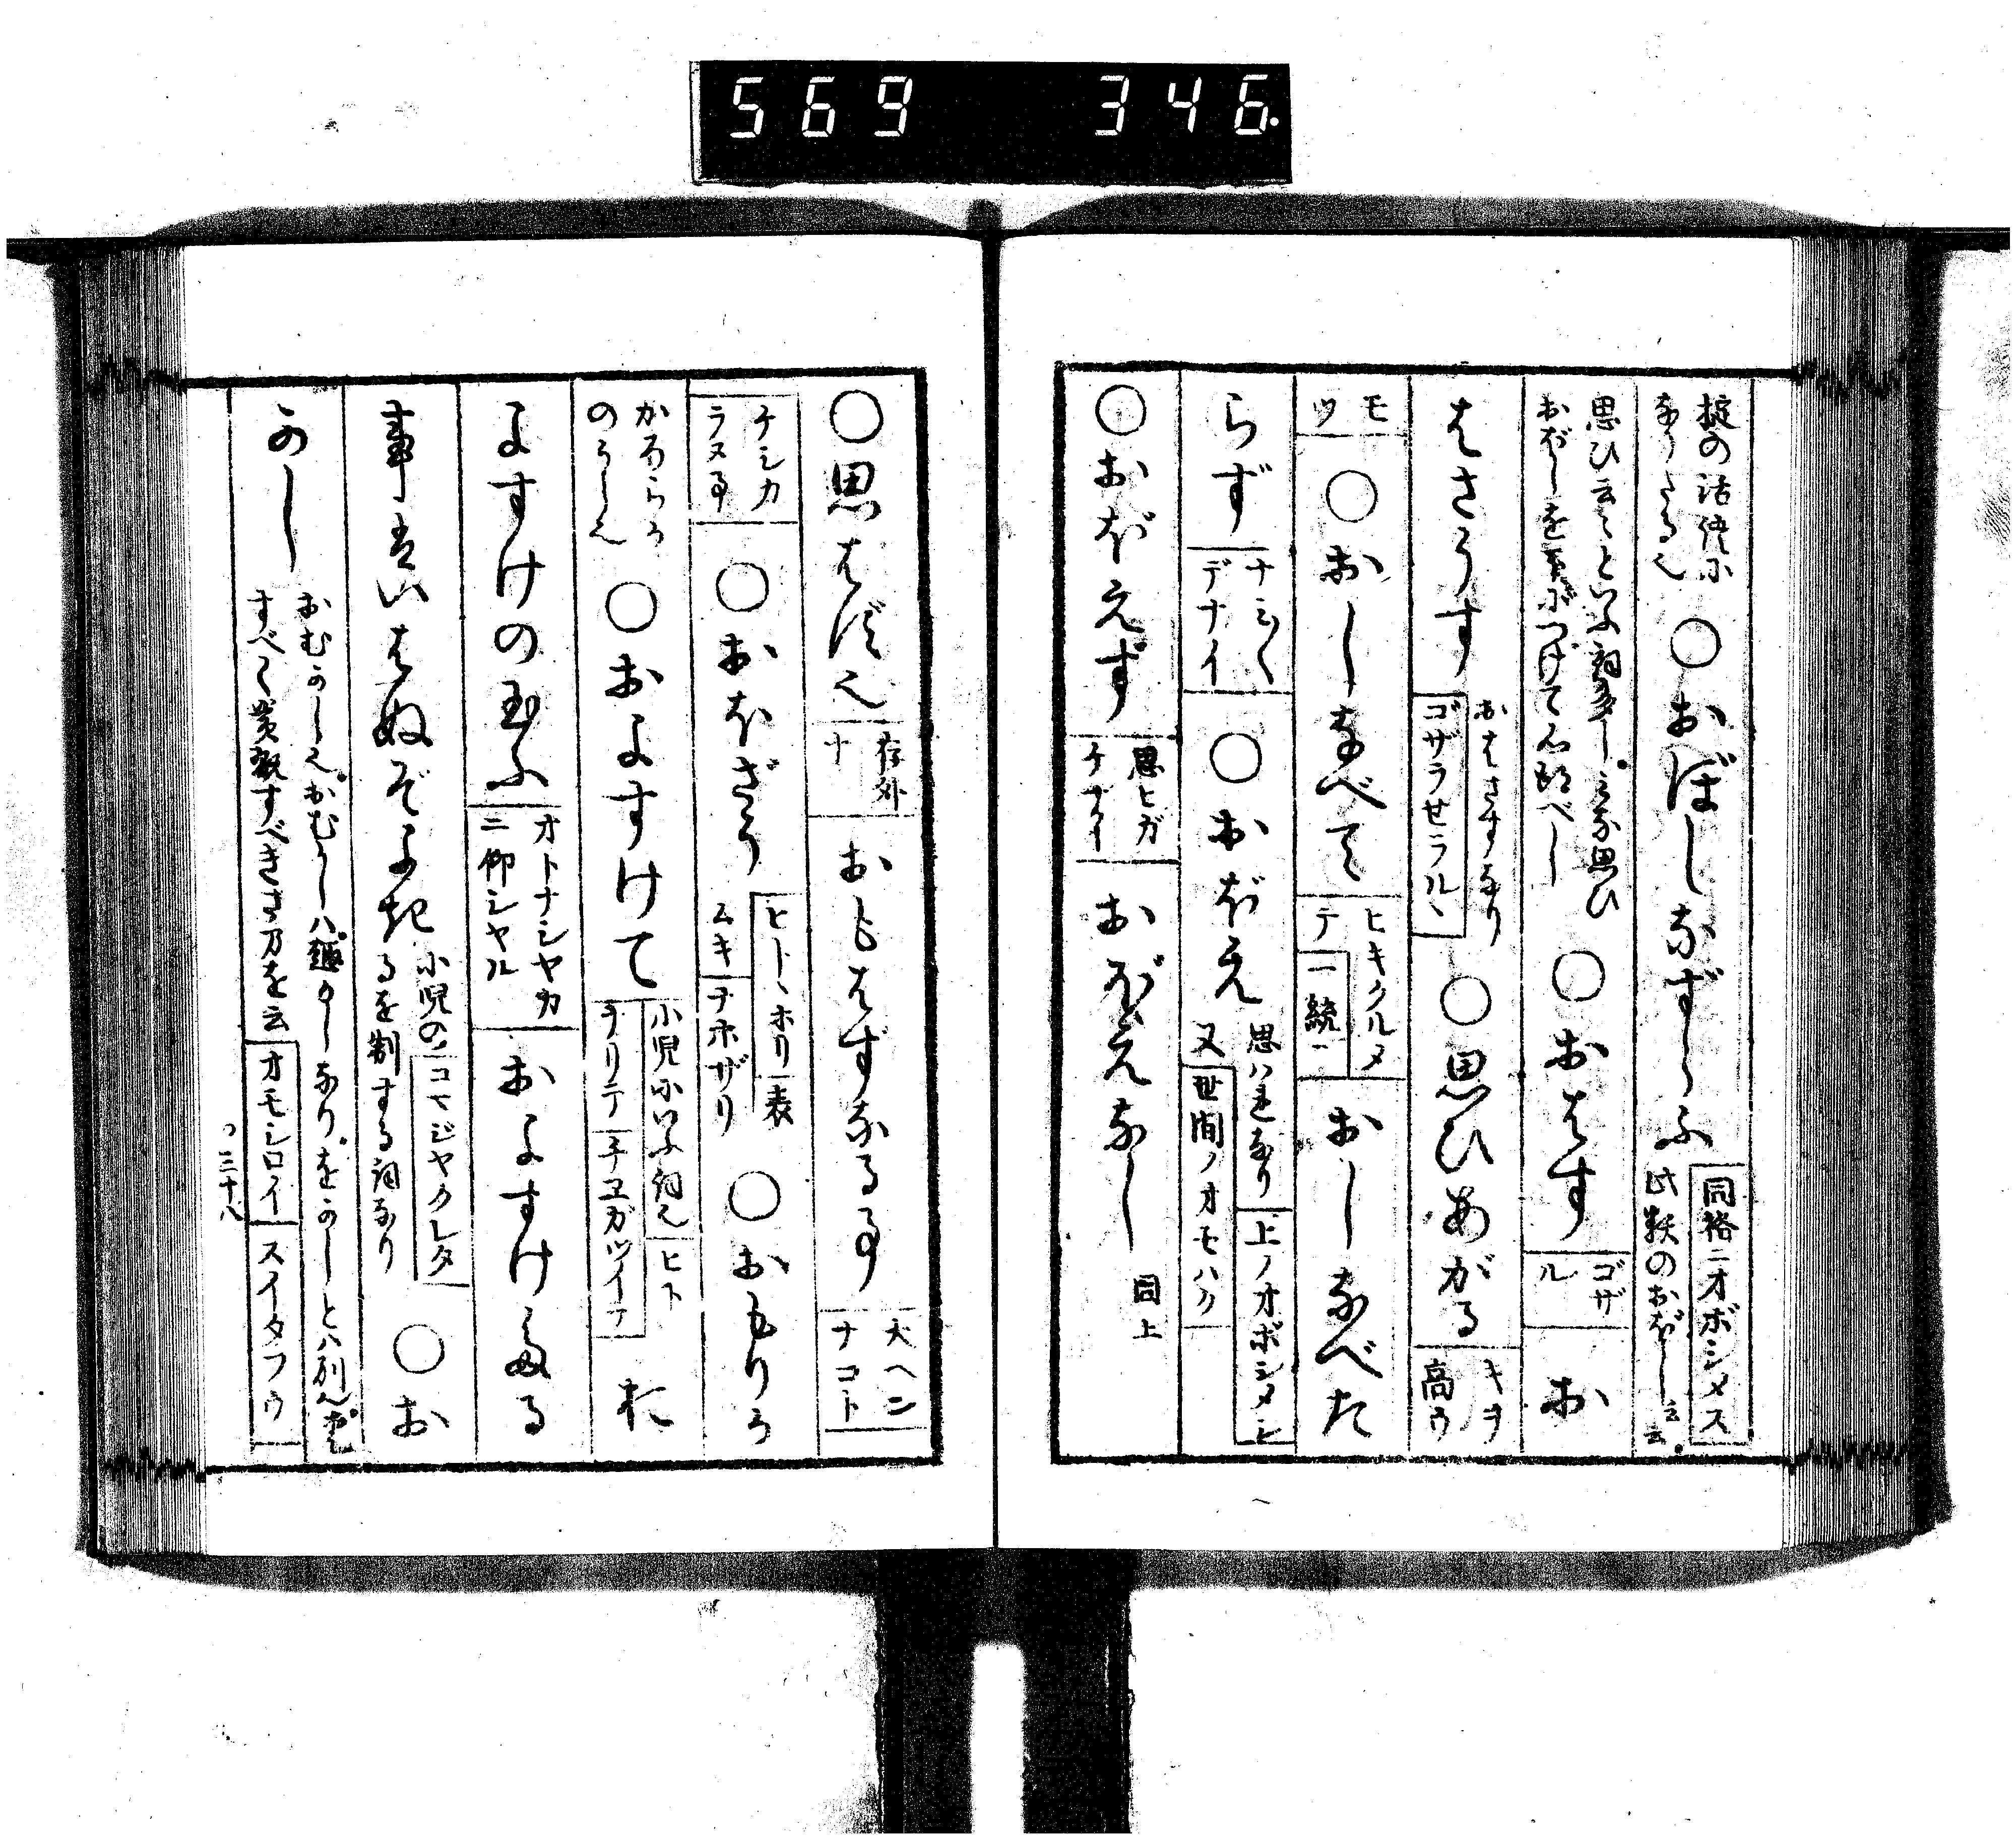 569 346.
掟の活便に
なりたる也
○おぼしなずらふ
同格ニオボシメス
此軼のおぼし云々
思ひ云々といふ詞多しみな思ひ
おぼしを上につけて心得べし
○おはす
ゴザ
ル
お
はさうす
おはさすなり
ゴザラセラルヽ
○思ひあがる
キヲ
高ウ
モ
ツ
○おしなべて
ヒキクルメ
テ
一統ニ
おしなべた
らず
ナミ〱
デナイ
○おぼえ
思ハれなり
上ノオボシメシ
又
世間ノオモハク
○おぼえず
思ヒガ
ケナイ
おぼえなし
同上
○思はずに
存外
ナ
おもはずなる事
大ヘン
ナコト
ケシカ
ラヌ事
○おほざう
ヒトトホリ
表
ムキ
ナホザリ
○おもりか
かろらか
のうら也
○およすけて
小児にいふ詞也
ヒト
ナリテ
チヱガツイテ
お
よすけの玉ふ
オトナシヤカ
ニ仰シヤル
およすけたる
事はいはぬぞよき
小児の
コマジヤクレタ
るを制する詞なり
○お
かし
おむかし也おむかしハ
なりをかしとハ別也
すべて賞翫すべきさ万を云
オモシロイ
スイタフウ
つ三十八